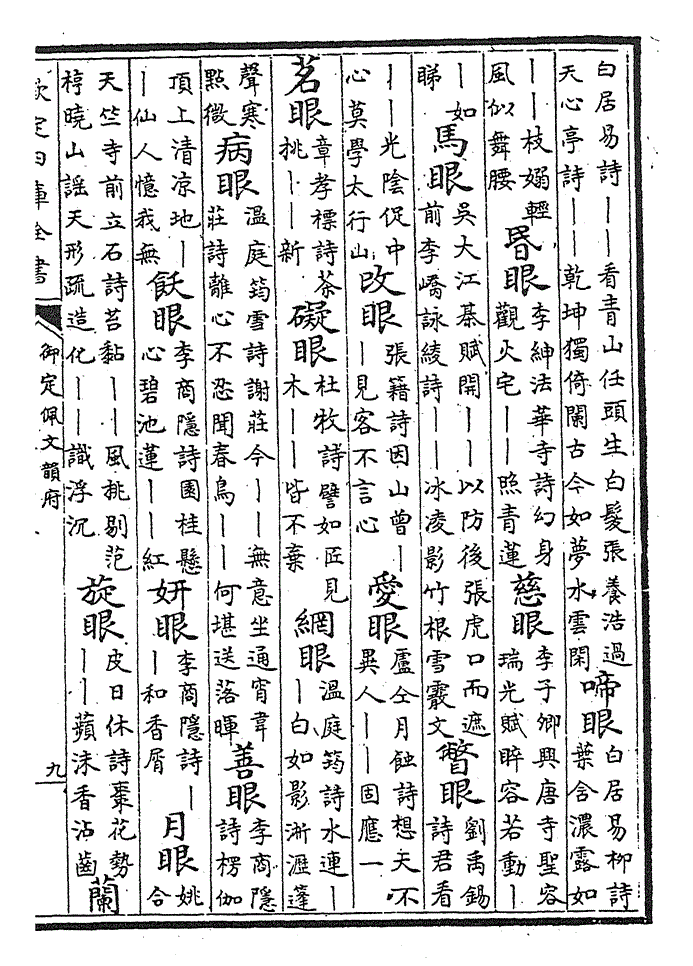 白居易詩——看青山任頭生白髮張養浩過
天心亭詩——乾坤獨倚闌古今如夢水雲閑
啼眼
白居易柳詩
葉含濃露如
——枝嫋輕
風似舞腰
昬眼
李紳法華寺詩幻身
觀火宅——照青蓮
慈眼
李子卿興唐寺聖容
瑞光賦睟容若動—
—如
睇
馬眼
吳大江棊賦開——以防後張虎口而遮
前李嶠詠綾詩——冰凌影竹根雪霰文
瞥眼
劉禹錫
詩君看
——光陰促中
心莫學太行山
改眼
張籍詩因山曾—
—見客不言心
愛眼
盧仝月蝕詩想天不
異人——固應一
茗眼
章孝標詩茶
挑——新
礙眼
杜牧詩譬如匠見
木——皆不棄
網眼
温庭筠詩水連—
—白如影淅瀝蓬
聲寒
點微
病眼
温庭筠雪詩謝莊今——無意坐通宵韋
莊詩離心不忍聞春鳥——何堪送落暉
善眼
李商隱
詩楞伽
頂上清凉地—
—仙人憶我無
飫眼
李商隱詩園桂懸
心碧池蓮——紅
妍眼
李商隱詩—
—和香屑
月眼
姚
合
天竺寺前立石詩苔黏——風挑剔范
梈曉山謡天形疏造化——識浮沉
旋眼
皮日休詩棗花勢
——蘋沫香沾齒
蘭
欽定四庫全書
御定佩文韻府
九